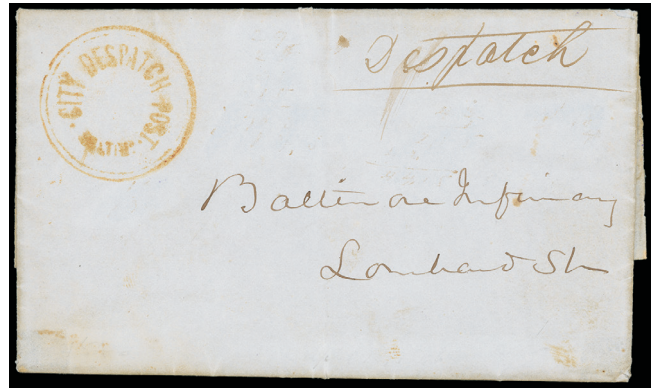 CITY DESPATCH POST.
BALTIMORE
Despatch
Baltimore Infirmary
Lombard St